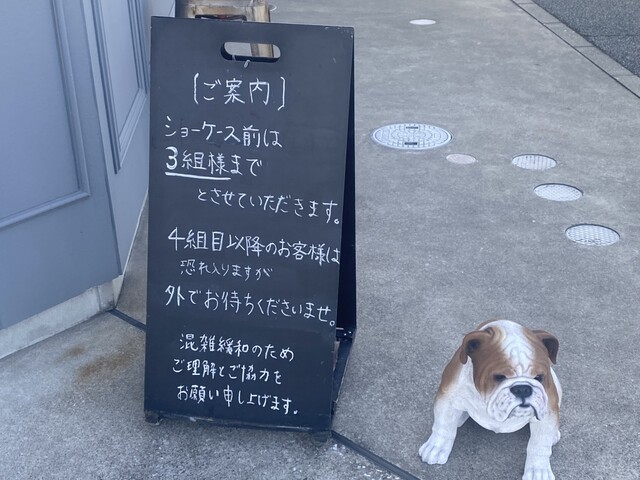 〔ご案内〕
ショーケース前は
3組様まで
とさせていただきます。
4組目以降のお客様は
恐れ入りますが
外でお待ちくださいませ。
混雑緩和のため
ご理解とご協力を
お願い申し上げます。